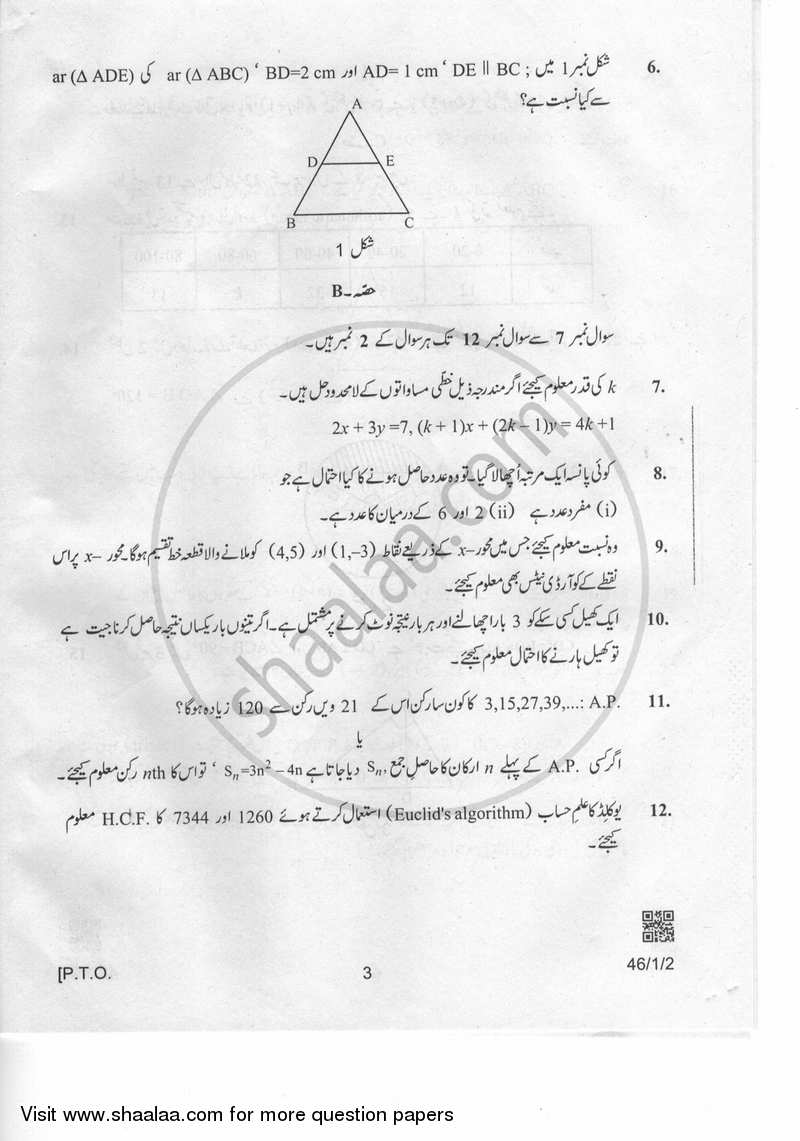 6. شکل نمبر 1 میں ; DE || BC ‘ AD= 1 cm اور BD=2 cm ‘ ar (Δ ABC) کی ar (Δ ADE)
سے کیا نسبت ہے؟
A
D E
B C
شکل 1
حصّہ -B
سوال نمبر 7 سے سوال نمبر 12 تک ہر سوال کے 2 نمبر ہیں۔
7. k کی قدر معلوم کیجئے اگر مندرجہ ذیل خطّی مساواتوں کے لامحدود حل ہیں۔
2x + 3y =7, (k + 1)x + (2k – 1)y = 4k +1
8. کوئی پانسہ ایک مرتبہ اُچھالا گیا۔ تو وہ عدد حاصل ہونے کا کیا احتمال ہے جو
(i) مفرد عدد ہے (ii) 2 اور 6 کے درمیان کا عدد ہے۔
9. وہ نسبت معلوم کیجئے جس میں محور–x کے ذریعے نقاط (1,–3) اور (4,5) کو ملانے والا قطعہ خط تقسیم ہوگا۔ محور–x پر اس
نقطے کے کوآرڈی نیٹس بھی معلوم کیجئے۔
10. ایک کھیل کسی سکے کو 3 بار اچھالنے اور ہر بار نتیجہ نوٹ کرنے پر مشتمل ہے۔ اگر تینوں بار یکساں نتیجہ حاصل کرنا جیت ہے
تو کھیل ہارنے کا احتمال معلوم کیجئے۔
11. A.P. :3,15,27,39,... کا کون سا رکن اس کے 21 ویں رکن سے 120 زیادہ ہوگا؟
یا
اگر کسی A.P. کے پہلے n ارکان کا حاصلِ جمع Sn, دیا جاتا ہے Sn=3n² – 4n ‘ تو اس کا nth رکن معلوم کیجئے۔
12. یوکلڈ کا علمِ حساب (Euclid's algorithm) استعمال کرتے ہوئے 1260 اور 7344 کا H.C.F. معلوم
کیجئے۔
shaalaa.com
[P.T.O. 3 46/1/2
Visit www.shaalaa.com for more question papers